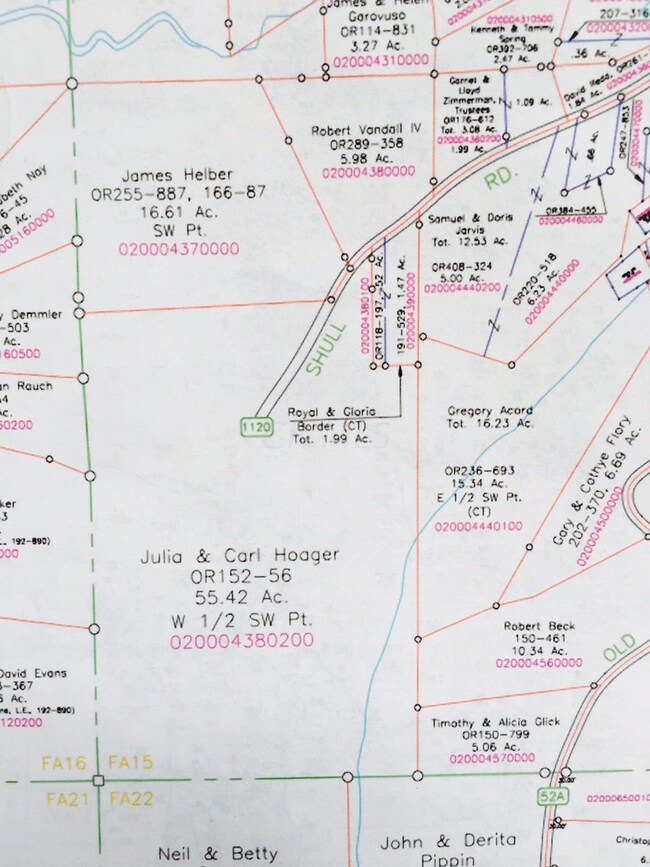 James & Helen
Garovuso
OR114-831
3.27 Ac.
020004310000
020004310500
Kenneth & Tammy
Spring
OR392-706
2.47 Ac.
207-316
.36 Ac.
David Redd, OR261-
1.84 Ac.
Garnet &
Lloyd
Zimmerman,
Trustees
OR176-612
Tot. 3.08 Ac.
020004360200
1.99 Ac.
1.09 Ac.
OR247-853
020004470000
.66 Ac.
OR384-455
020004460000
Robert Vandall IV
OR289-358
5.98 Ac.
020004380000
James Helber
OR255-887, 166-87
16.61 Ac.
SW Pt.
020004370000
beth Nay
6-45
28 Ac.
005160000
RD.
Samuel & Doris
Jarvis
Tot. 12.53 Ac.
OR408-324
5.00 Ac.
020004440200
OR220-518
6.23 Ac.
020004440000
020004380100
OR118-197, .52 Ac.
191-529, 1.47 Ac.
020004390000
y Demmler
-503
Ac.
160500
SHULL
1120
Royal & Gloria
Border (CT)
Tot. 1.99 Ac.
an Rauch
4
Ac.
60200
Gregory Acord
Tot. 16.23 Ac.
OR236-693
15.34 Ac.
E 1/2 SW Pt.
(CT)
020004440100
Gary & Cathye Flory
202-370, 6.69 Ac.
020004500000
ker
3
Ac.
E. 192-890)
000
Julia & Carl Hoager
OR152-56
55.42 Ac.
W 1/2 SW Pt.
020004380200
Robert Beck
150-461
10.34 Ac.
020004560000
OLD
David Evans
-367
Ac.
, L.E., 192-890)
120200
Timothy & Alicia Glick
OR150-799
5.06 Ac.
020004570000
FA16 FA15
FA21 FA22
52A
02000650010
Neil & Betty
John & Derita
Pippin
Christop
6.